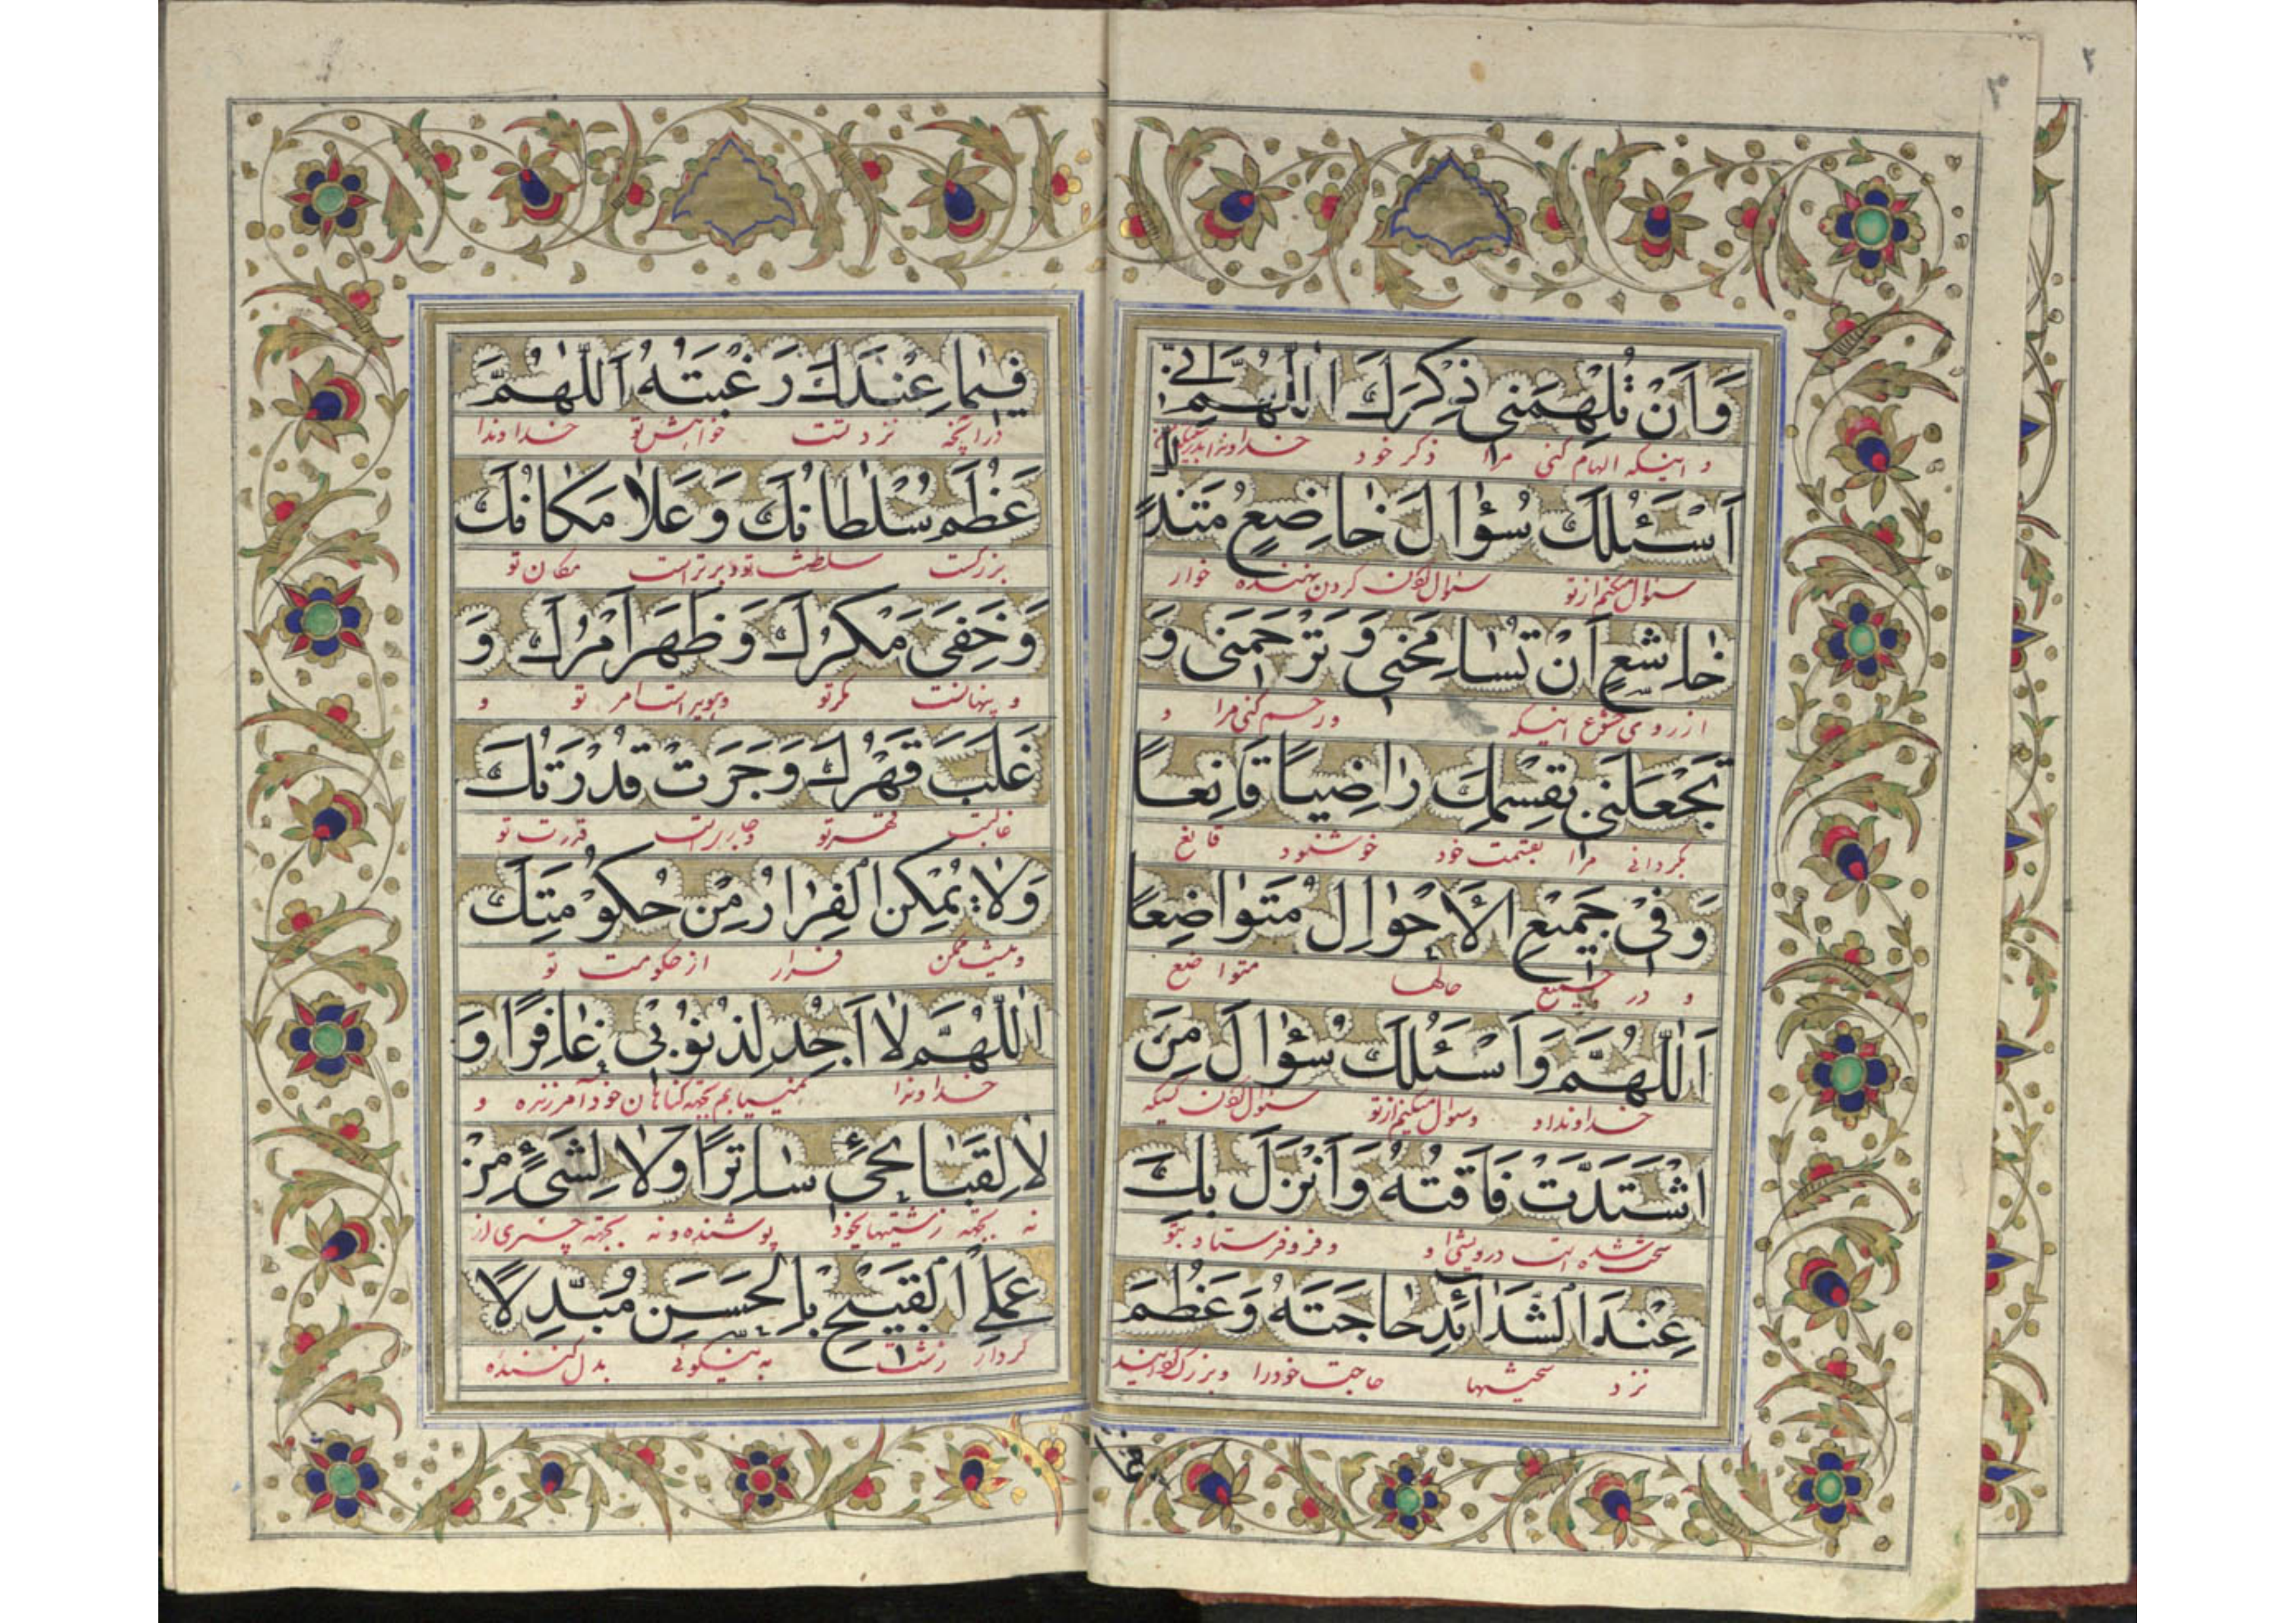 ٢
٣
وَاَنْ تُلْهِمَنى ذِكْرَكَ اَللّٰهُمَّ اِنّى
و اینکه الهام کنی مرا ذکر خود خداوندا بدرستیکه من
اَسْئَلُكَ سُؤٰالَ خٰاضِعٍ مُتَذَلِّلٍ
سئوال میکنم از تو سئوال کردن خوار
خٰاشِعٍ اَنْ تُسٰامِحَنى وَ تَرْحَمَنى وَ
از روی خشوع اینکه و رحم کنی مرا و
تَجْعَلَنى بِقِسْمِكَ رٰاضِياً قٰانِعاً
بگردانی مرا بقسمت خود خوشنود قانع
وَ فى جَميعِ الْاَحْوٰالِ مُتَوٰاضِعاً
و در جمیع حالها متواضع
اَللّٰهُمَّ وَاَسْئَلُكَ سُؤٰالَ مَنِ
خداوندا و سئوال میکنم از تو سئوال کردن کسیکه
اشْتَدَّتْ فٰاقَتُهُ وَاَنْزَلَ بِكَ
سخت شده است درویشی او و فرو فرستاد بتو
عِنْدَ الشَّدٰائِدِ حٰاجَتَهُ وَعَظُمَ
نزد سختیها حاجت خود را و بزرگ
فيما
فيمٰا عِنْدَكَ رَغْبَتُهُ اَللّٰهُمَّ
در آنچه نزد تست خواهش تو خداوندا
عَظُمَ سُلْطٰانُكَ وَ عَلٰا مَكٰانُكَ
بزرگست سلطنت تو و برتر است مکان تو
وَ خَفِىَ مَكْرُكَ وَ ظَهَرَ اَمْرُكَ وَ
و پنهانست مکر تو و هویداست امر تو و
غَلَبَ قَهْرُكَ وَ جَرَتْ قُدْرَتُكَ
غالبست قهر تو و جاریست قدرت تو
وَلٰا يُمْكِنُ الْفِرٰارُ مِنْ حُكُومَتِكَ
و نیست ممکن فرار از حکومت تو
اَللّٰهُمَّ لٰا اَجِدُ لِذُنُوبى غٰافِرًا وَ
خداوندا نمییابم بجهة گناهان خود آمرزنده و
لٰا لِقَبٰائِحى سٰاتِرًا وَلٰا لِشَىْءٍ مِنْ
نه بجهة زشتیهای خود پوشنده و نه بجهة چیزی از
عَمَلِىَ الْقَبيحِ بِالْحَسَنِ مُبَدِّلًا
کردار زشت به نیکوئی بدل کننده